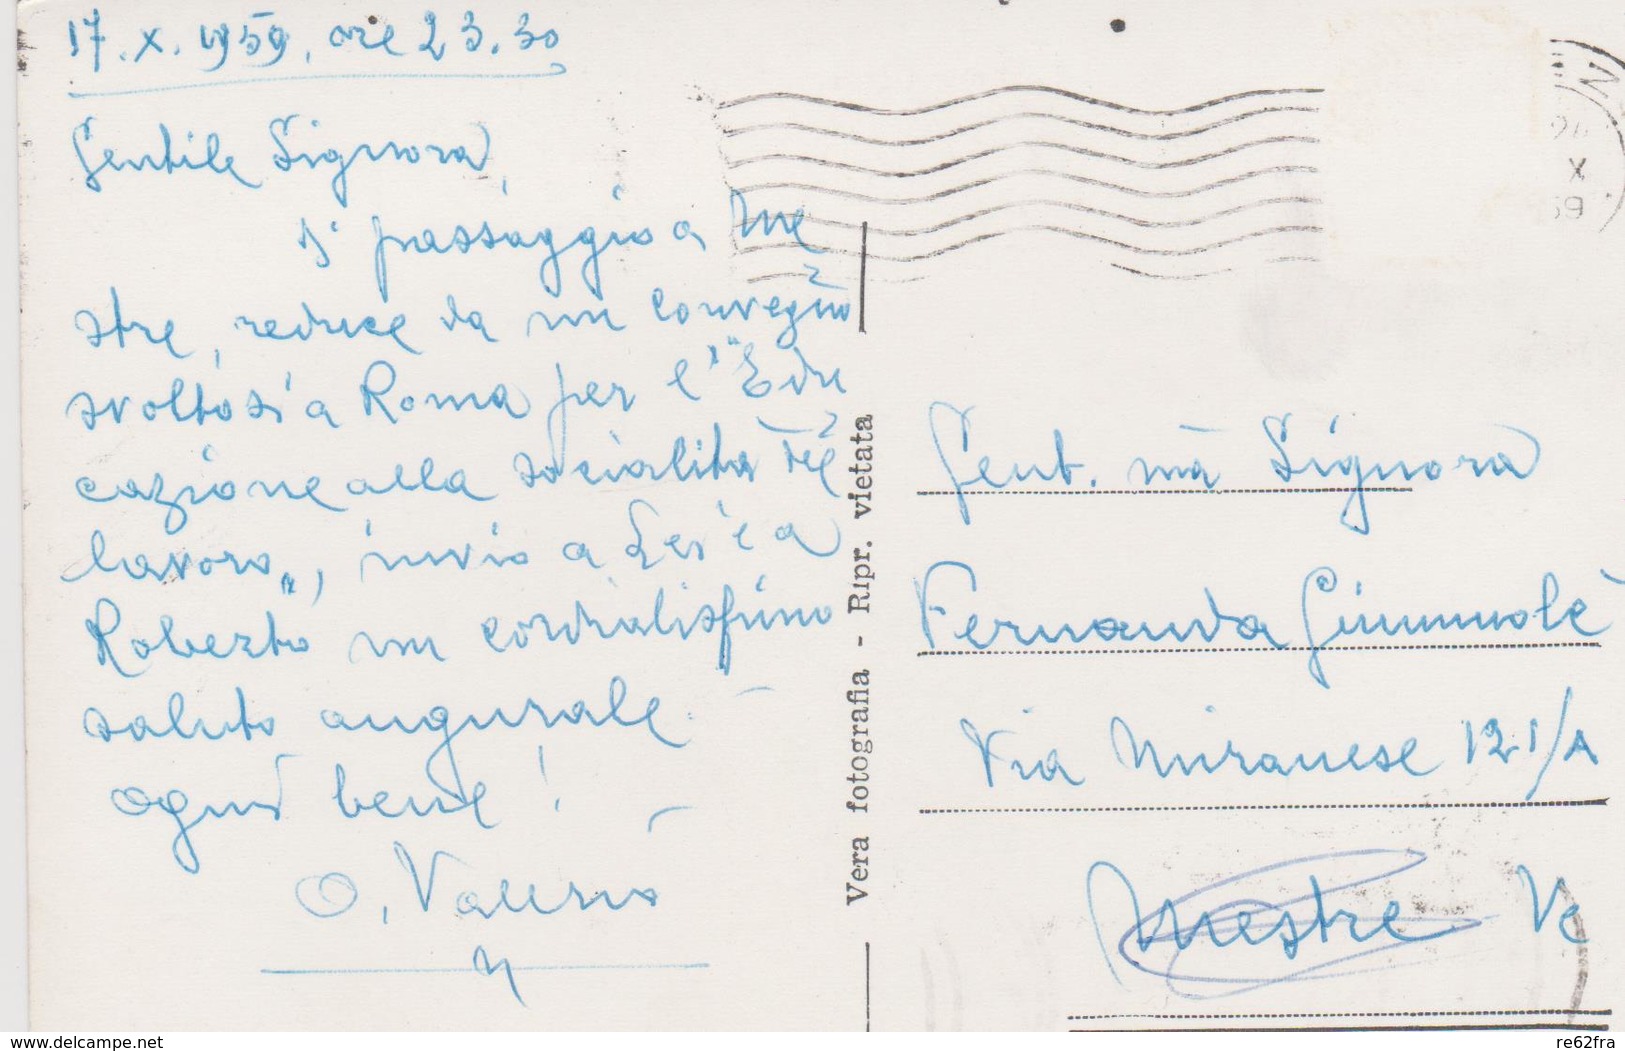 17.X.1959, ore 23.30
Gentile Signora,
Di passaggio a Me
stre, reduce da un convegno
svoltosi a Roma per l'"Edu
cazione alla socialità del
lavoro", invio a Lei e a
Roberto un cordialissimo
saluto augurale.
Ogni bene!
O. Valerio
Vera fotografia - Ripr. vietata
N
24
X
59
Gent.ma Signora
Fernanda Gimmolè
Via Miranese 121/A
Mestre Ve
www.delcampe.net
re62fra